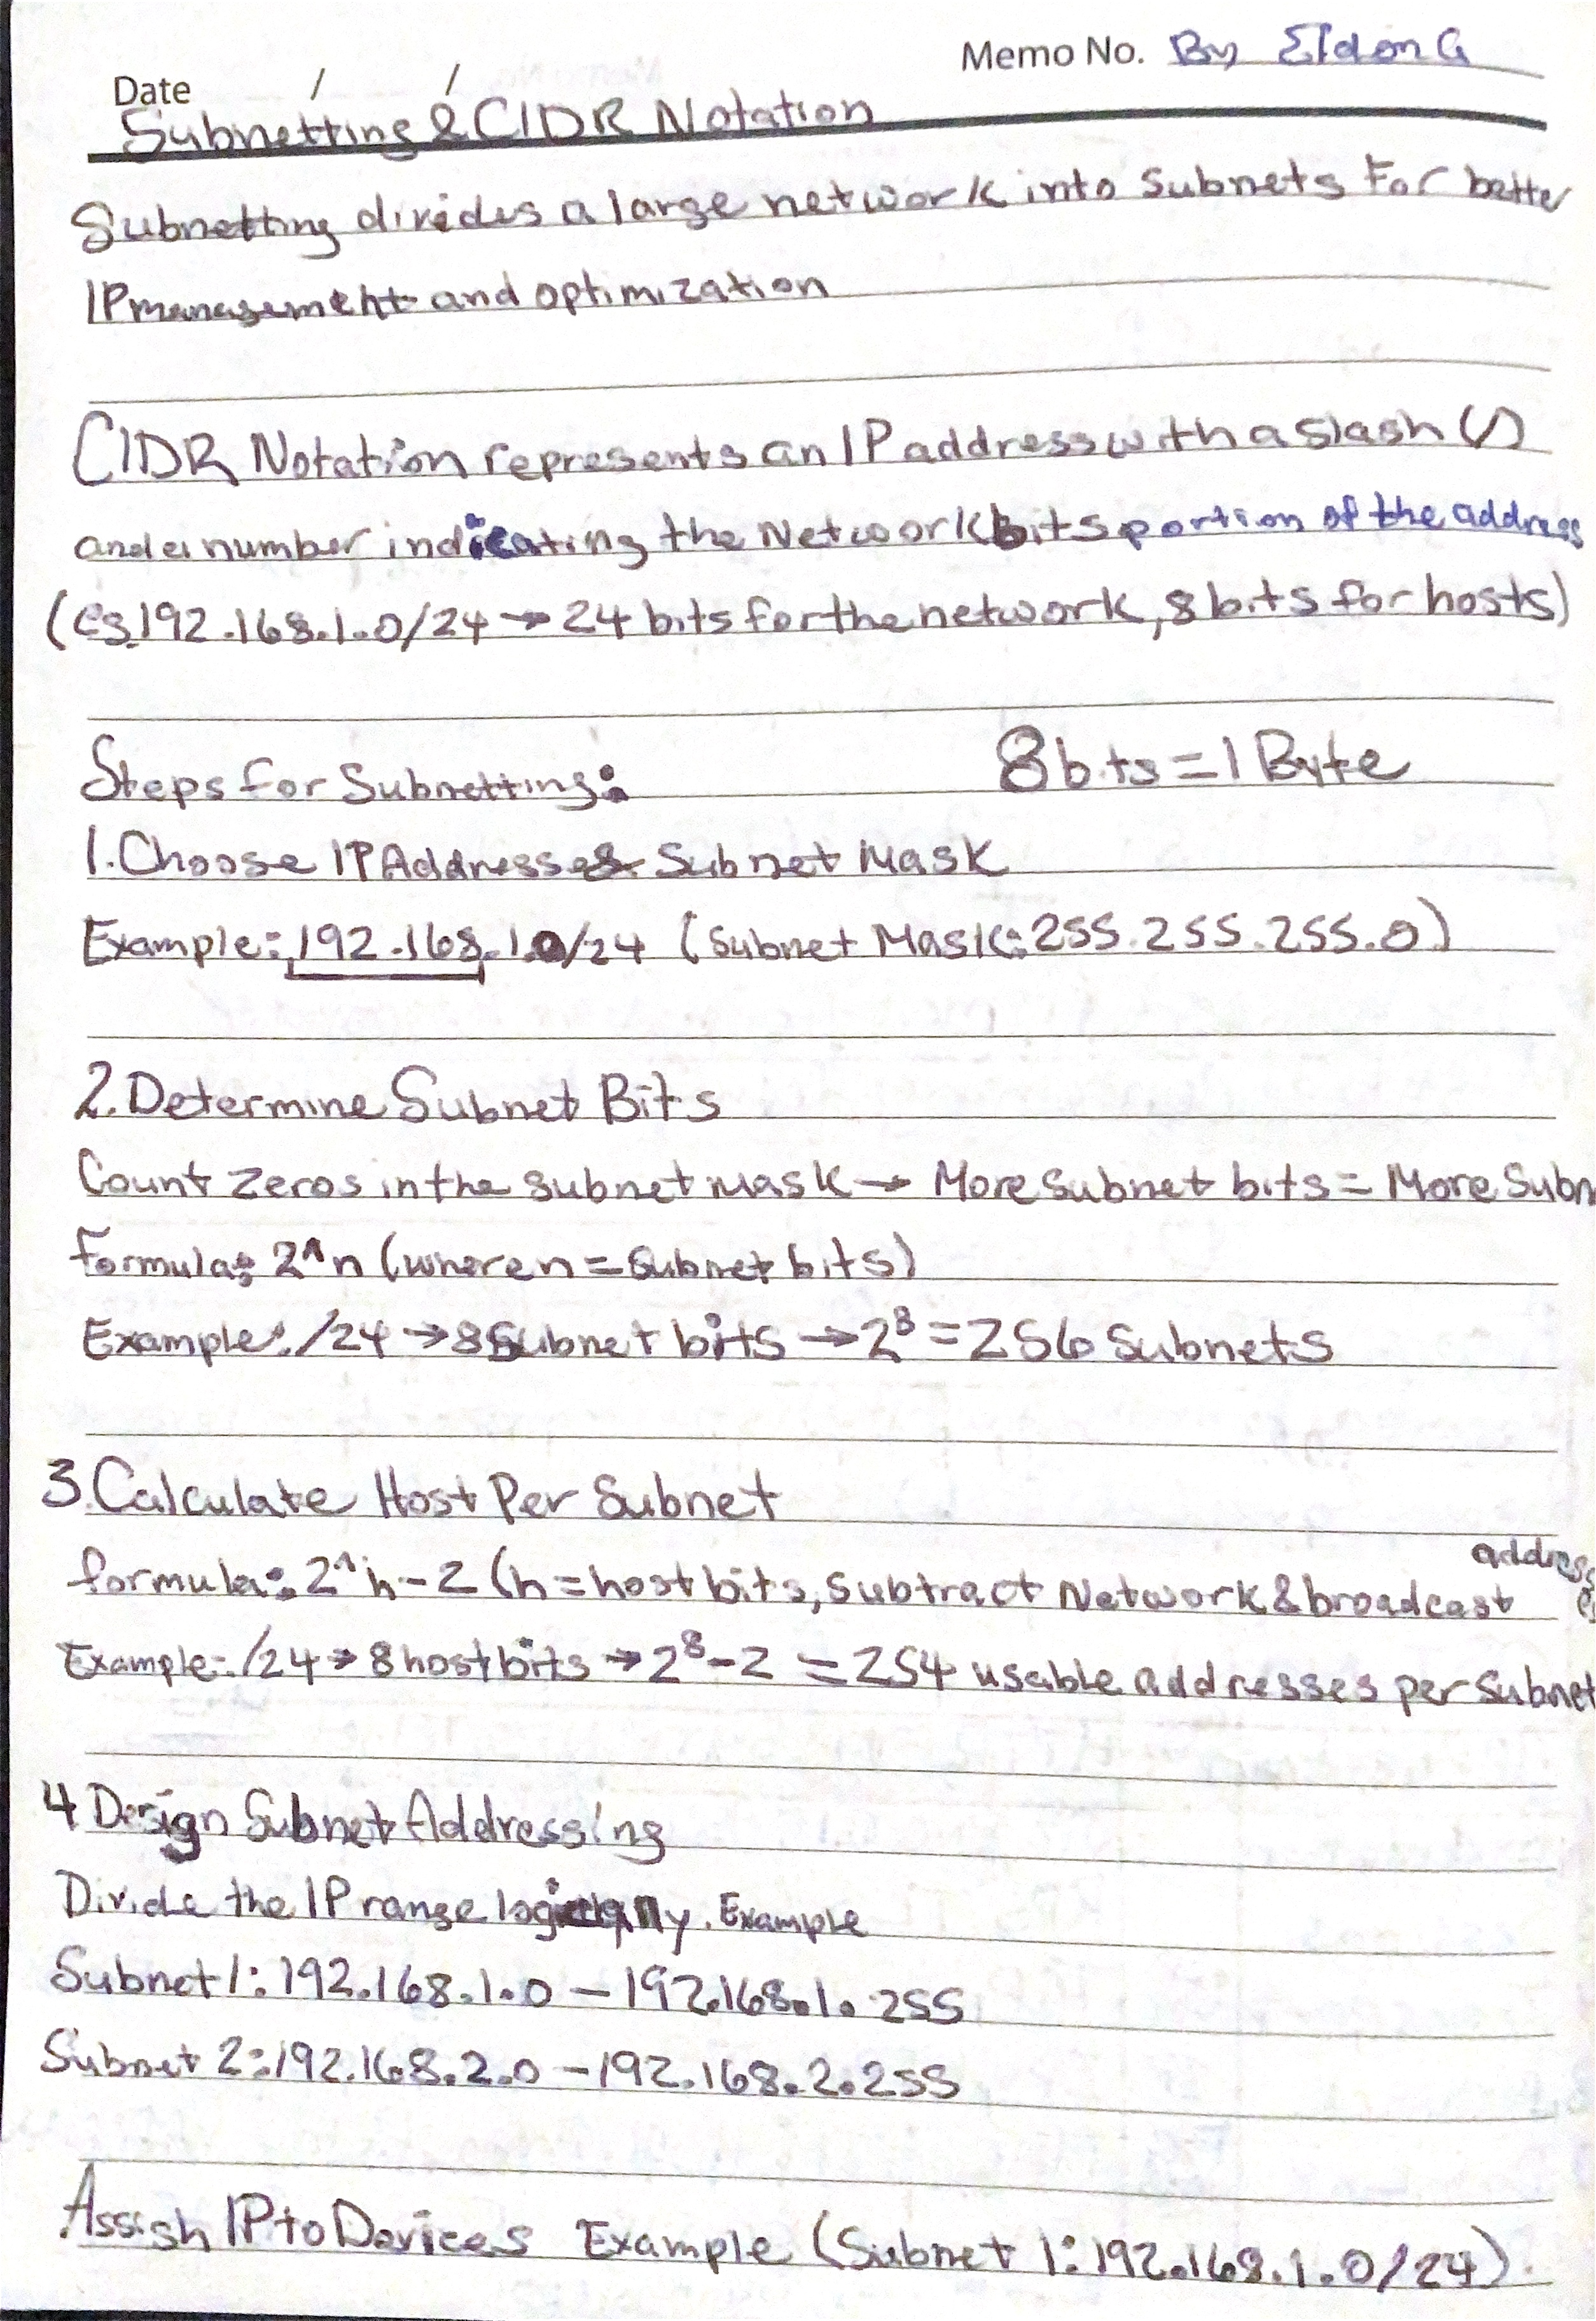 Memo No. By Eldon G
Date / /
Subnetting & CIDR Notation
Subnetting divides a large network into Subnets For better
IP management and optimization
CIDR Notation represents an IP address with a slash (/)
and a number indicating the Network bits portion of the address
(eg. 192.168.1.0/24 → 24 bits for the network, 8 bits for hosts)
Steps for Subnetting: 8 bits = 1 Byte
1. Choose IP Address & Subnet Mask
Example: 192.168.1.0/24 (Subnet Mask: 255.255.255.0)
2. Determine Subnet Bits
Count zeros in the subnet mask → More Subnet bits = More Subn
Formula: 2^n (where n = subnet bits)
Example: /24 → 8 Subnet bits → 2⁸ = 256 Subnets
3. Calculate Host Per Subnet
formula: 2^h - 2 (h = host bits, subtract Network & broadcast address
Example: /24 → 8 host bits → 2⁸ - 2 = 254 usable addresses per subnet
4 Design Subnet Addressing
Divide the IP range logically. Example
Subnet 1: 192.168.1.0 – 192.168.1.255
Subnet 2: 192.168.2.0 – 192.168.2.255
Assign IP to Devices Example (Subnet 1: 192.168.1.0/24).